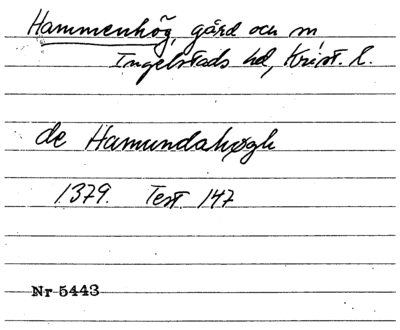 Hammenhög, gård och m
Ingelstads hd, Krist. l.
de Hamundahøgh
1379. Test. 147
Nr 5443